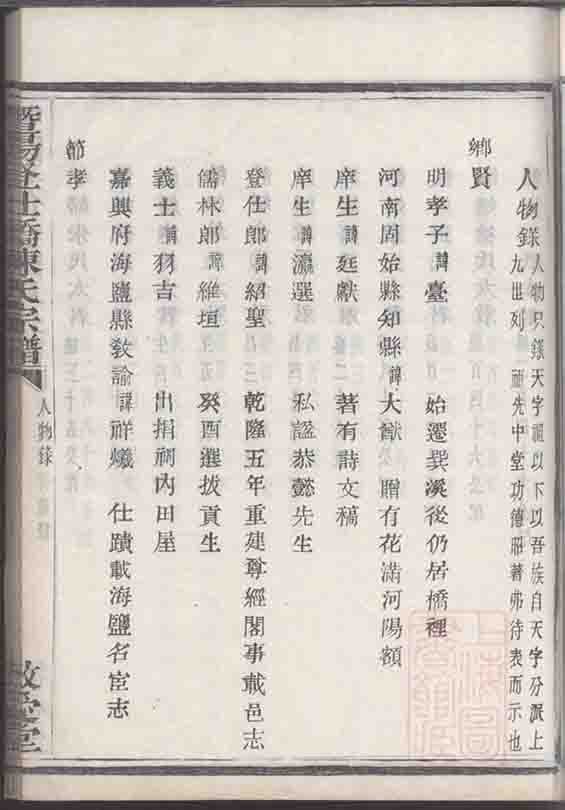 人物錄 人物只錄天字派以下以吾族自天字分派上
九世列祖先中堂功德昭著弗待表而示也
鄉賢
明孝子諱臺 始遷巽溪後仍居橋裡
河南固始縣知縣諱大猷 贈有花滿河陽額
庠生諱廷獻 著有詩文稿
庠生諱瀛選 私諡恭懿先生
登仕郎諱紹聖 乾隆五年重建尊經閣事載邑志
儒林郎諱維垣 癸酉選拔貢生
義士諱羽吉 出捐祠內田屋
嘉興府海鹽縣教諭諱祥爔 仕蹟載海鹽名宦志
節孝
暨陽 仕橋陳氏宗譜
人物錄
敬 堂
上海圖書館